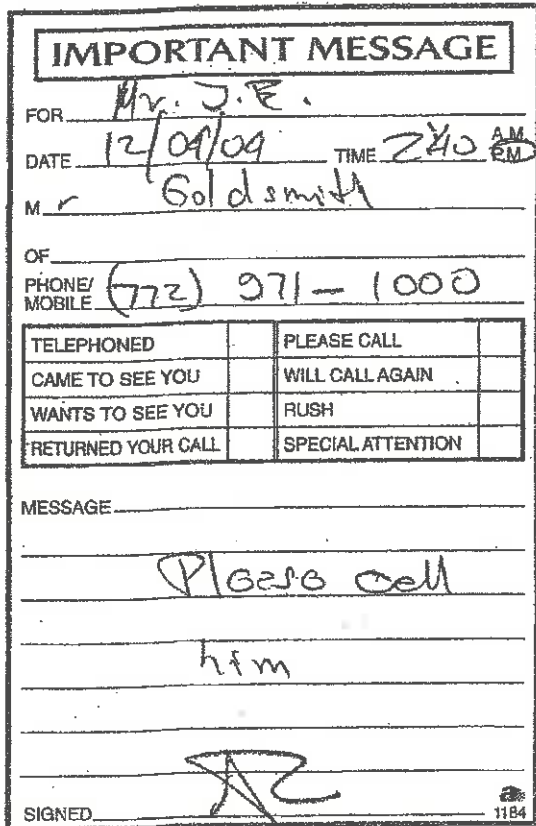 IMPORTANT MESSAGE
FOR Mr. J.E.
DATE 12/09/04 TIME 2:40 A.M. P.M.
M r Goldsmith
OF
PHONE/ MOBILE (772) 971-1000
TELEPHONED PLEASE CALL
CAME TO SEE YOU WILL CALL AGAIN
WANTS TO SEE YOU RUSH
RETURNED YOUR CALL SPECIAL ATTENTION
MESSAGE
Please call
him
SIGNED
1184